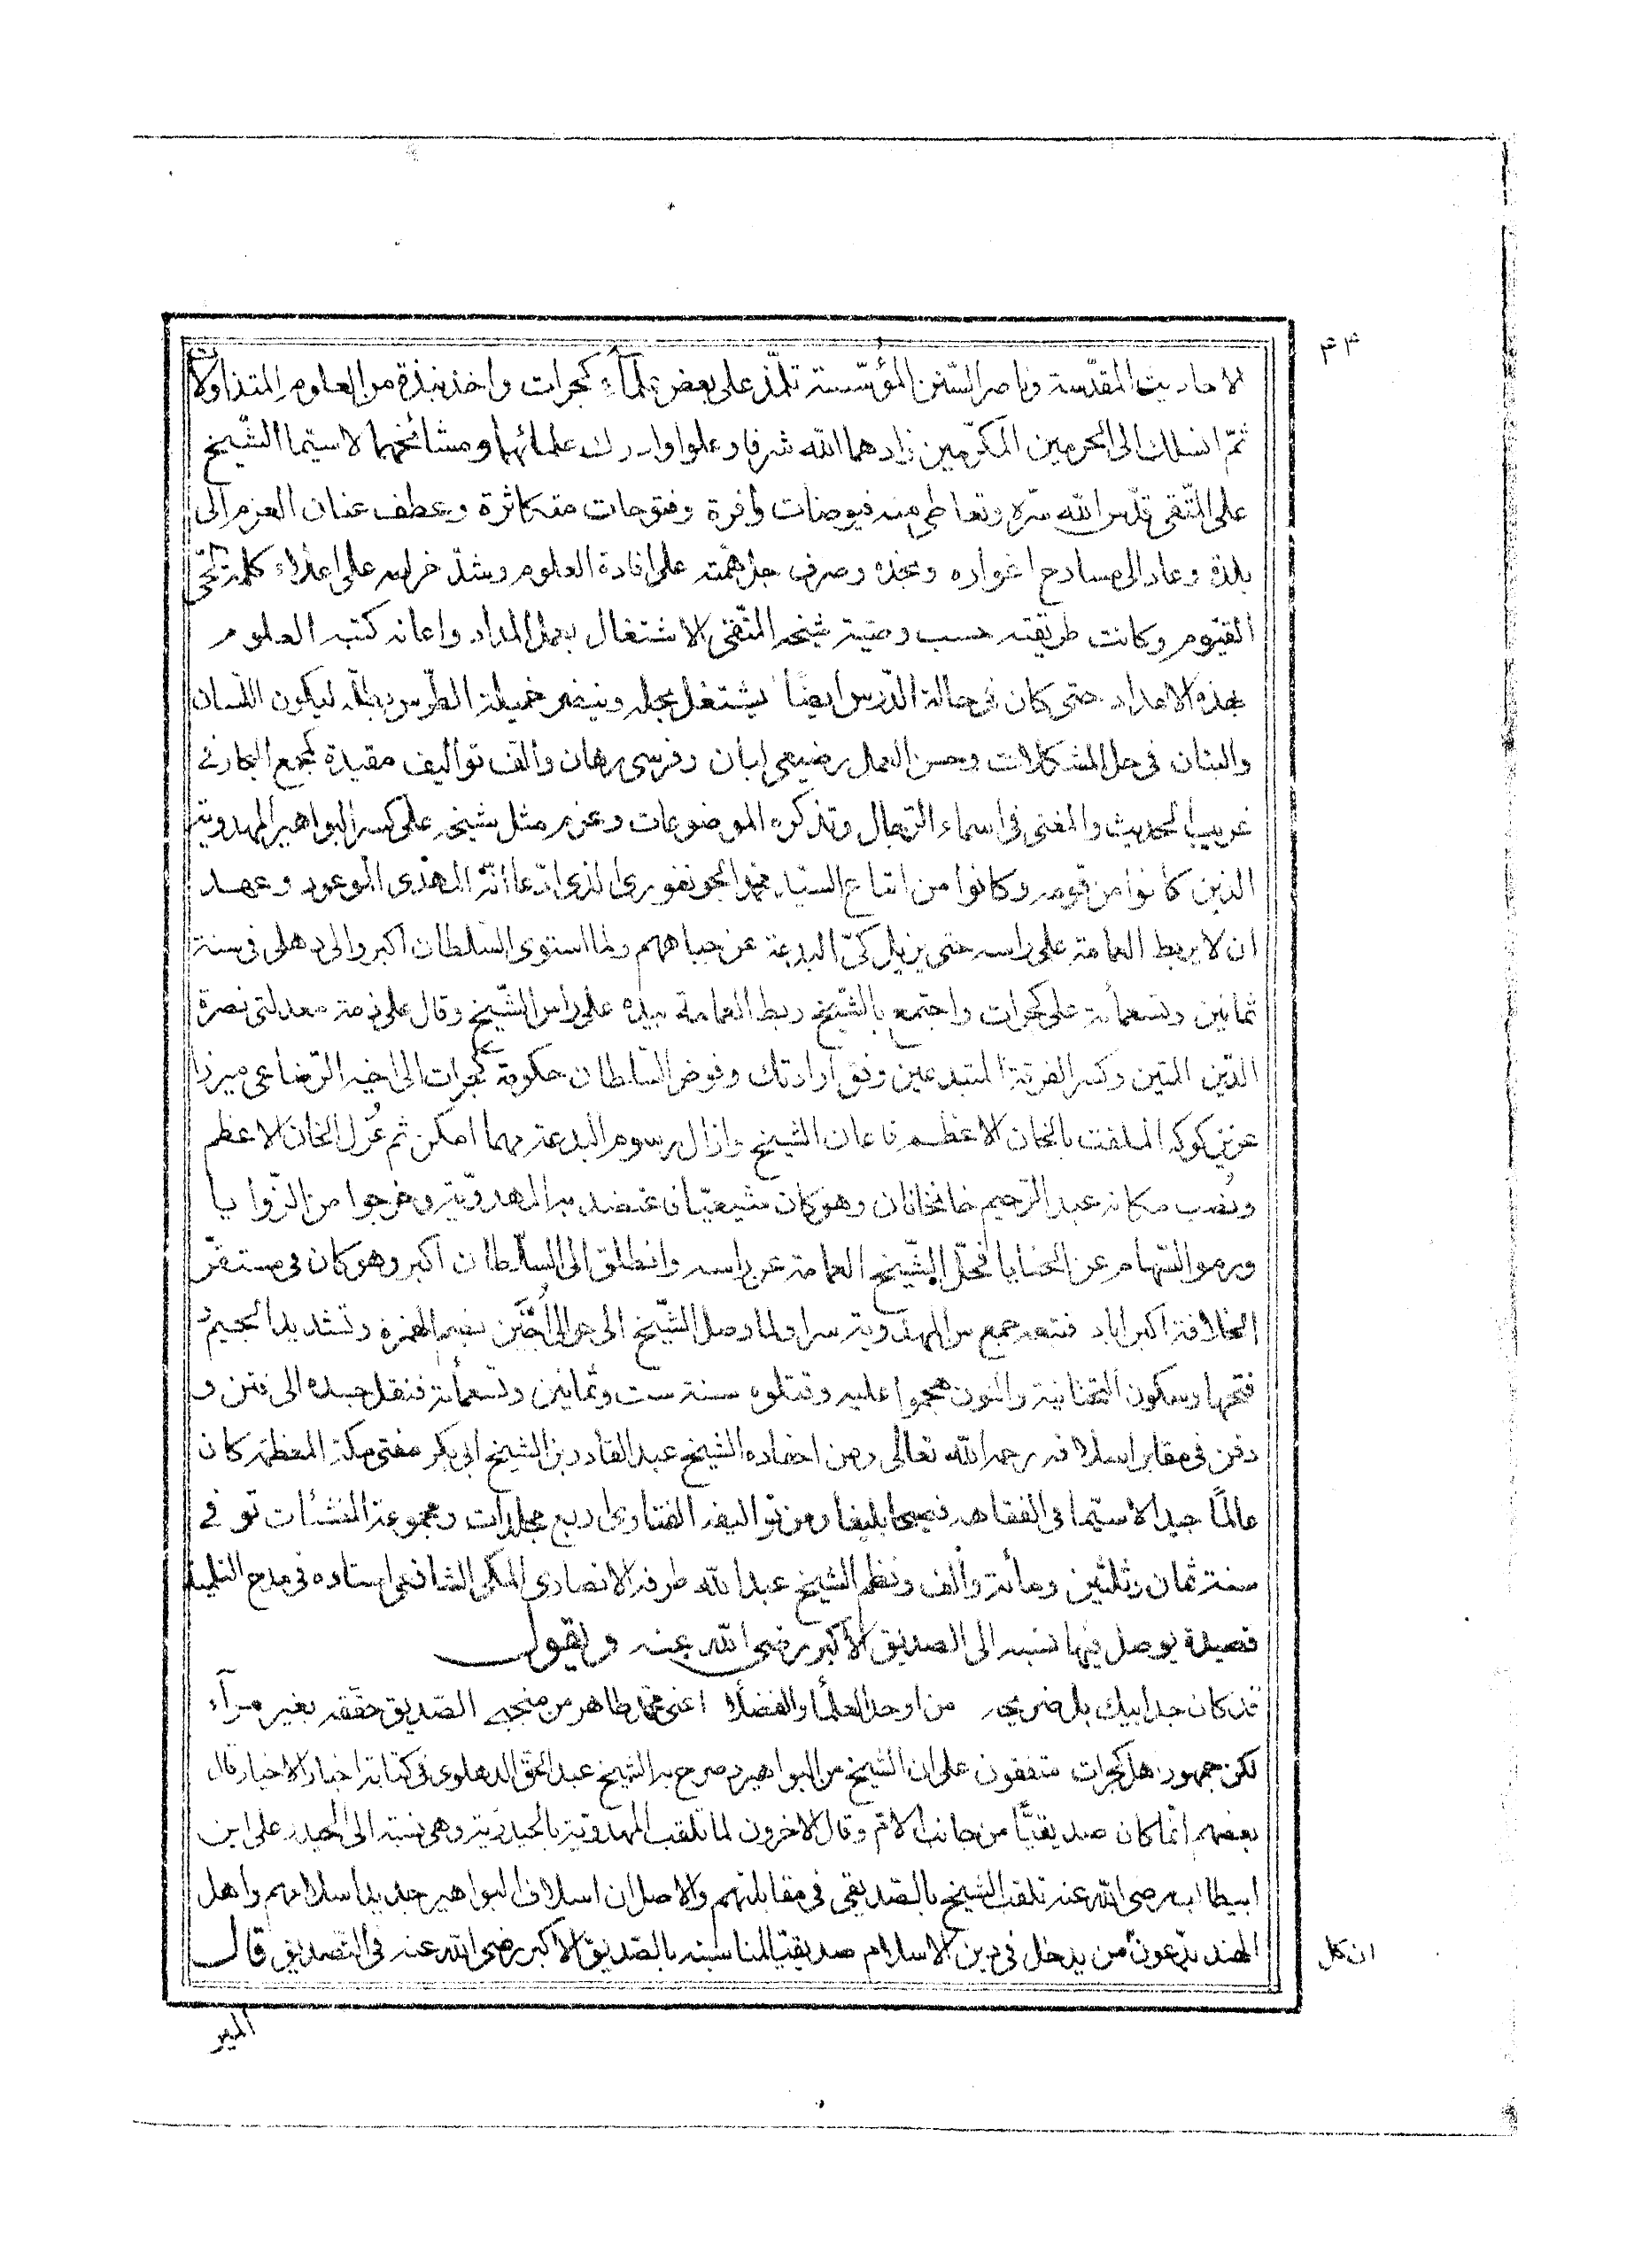 ۴۴
لاحاديث المقدّسة وناصر السّنن المؤسّسة تلمّذ على بعض علمآء كجرات واخذ نبذة من العلوم المتداولات
ثمّ انسلك الى الحرمين المكرّمين زادهما الله شرفا وعلوا وادرك علمائهما ومشائخهما لاسيّما الشّيخ
على المتّقى قدّس الله سرّه وتعاطى منه فيوضات وافرة وفتوحات متكاثرة وعطف عنان العزم الى
بلده وعاد الى مسارح اغواره ونجده وصرف جل همّته على افادة العلوم وشدّ على اعلاء كلمة الحىّ
القيّوم وكانت طريقته حسب وصيّة شيخه المتّقى الاشتغال بعمل المداد واعانه كتبه العلوم
بهذه الامداد حتى كان فى حالة الدّرس ايضًا يشتغل بحله وينضر خميلة الطّرس بطلّه ليكون اللّسان
والبنان فى حل المشكلات وحسن العمل رضيعى لبان وفرسى رهان والّف تواليف مفيدة كمجمع البحار فى
غريب الحديث والمغنى فى اسماء الرّجال وتذكرة الموضوعات وعزم مثل شيخه على كسر البواهير المهدوية
الذين كانوا من قومه وكانوا من اتباع السيّد محمّد الجونفورى الذى ادّعا انّه المهدى الموعود وعهد
ان لا يربط العمامة على راسه حتى يزيل كىّ البدعة عن جباههم ولما استوى السّلطان اكبر والى دهلى فى سنة
ثمانين وتسعمأئة على كجرات واجتمع بالشّيخ ربط العمامة بيده على راس الشّيخ وقال على ذمة معدلتى نصرة
الدّين المتين وكسر الفرقة المبتدعين وفق ارادتك وفوض السّلطان حكومة كجرات الى اخيه الرّضاعى ميرزا
عزيز كوكه الملقب بالخان الاعظم فاعان الشيخ وازال رسوم البدعة مهما امكن ثم عُزل الخان الاعظم
ونُصب مكانه عبد الرّحيم خانخانان وهو كان شيعيّا فاعتضد به المهدويّة وخرجوا من الزّوايا
ورموا السّهام عن الحنايا فحلّ الشّيخ العمامة عن راسه وانطلق الى السّلطان اكبر وهو كان فى مستقرّ
الخلافة اكبراباد فتبعه جمع من المهدوية سرا ولما وصل الشّيخ الى حوالى اُجَّيْن بضم الهمزة وتشديد الجيم و
فتحها وسكون التحتانية والنون هجموا عليه وقتلوه سنة ست وثمانين وتسعمأئة فنقل جسده الى فتن و
دفن فى مقابر اسلافه رحمه الله تعالى ومن احفاده الشيخ عبد القادر بن الشيخ ابى بكر مفتى مكة المعظمة كان
عالمًا جيدا لاسيّما فى الفقاهة فصيحا بليغا ومن تواليفه الفتاوى اربع مجلدات ومجموعة المنشئات توفى
سنة ثمان وثلثين ومأئة والف ونظم الشيخ عبد الله طرفه الانصارى المكى الشافعى استاده فى مدح التلميذ
قصيدة يوصل فيها نسبه الى الصديق الاكبر رضى الله عنه ويقول
قد كان جد ابيك بل ضريحه من اوحد العلما والفضلا اعنى محمّد طاهر من منجبى الصّديق حققه بغير مرآء
لكن جمهور اهل كجرات متفقون على ان الشيخ من البواهير صرح به الشيخ عبد الحق الدهلوى فى كتابة اخبار الاخيار قال
بعضهم انّما كان صديقيًّا من جانب الام وقال الاخرون لما تلقب المهدوية بالحيدرية وهى نسبة الى الحيدر على ابن
ابيطالب رضى الله عنه تلقب الشيخ بالصّديقى فى مقابلتهم والاصل ان اسلاف البواهير جديد اسلامهم واهل
الهند يدّعون من يدخل فى دين الاسلام صديقيّا لمناسبته بالصّديق الاكبر رضى الله عنه فى التّصديق قال
ان كل
المير